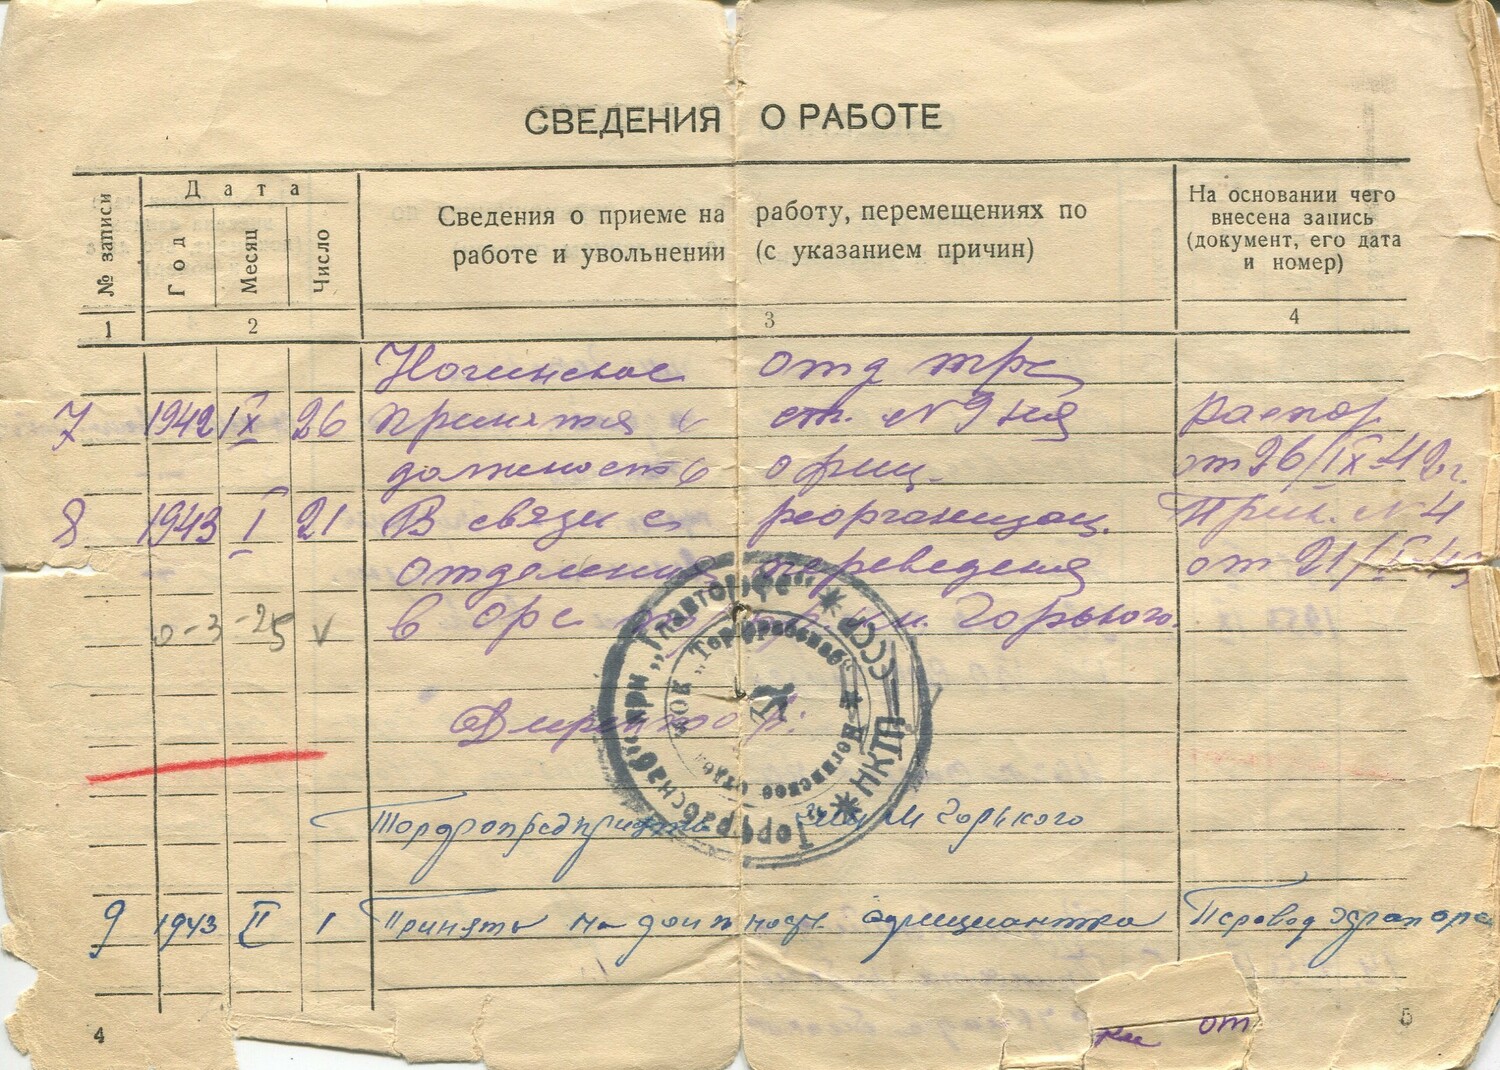 СВЕДЕНИЯ О РАБОТЕ
№ записи
Дата
Год
Месяц
Число
Сведения о приеме на работу, перемещениях по
работе и увольнении (с указанием причин)
На основании чего
внесена запись
(документ, его дата
и номер)
1 2 3 4
Ногинское отд трс
7 1942 IX 26 принята в ст. № 9 на Распор
должность офиц. от 26/IX-42г.
8 1943 I 21 В связи с реорганизац. Прик. №4
отделения переведена от 21/I-43
0-3 -25 v в орс им. Горького.
Директор.
Торфопредприятие им М Горького
9 1943 II 1 Принята на должность официантка Перевод из орса
Торфрабснаб при „Главторфе“ СССР НКТП
„Торфрабснаб“ Ногинское отде
ки от
4 5